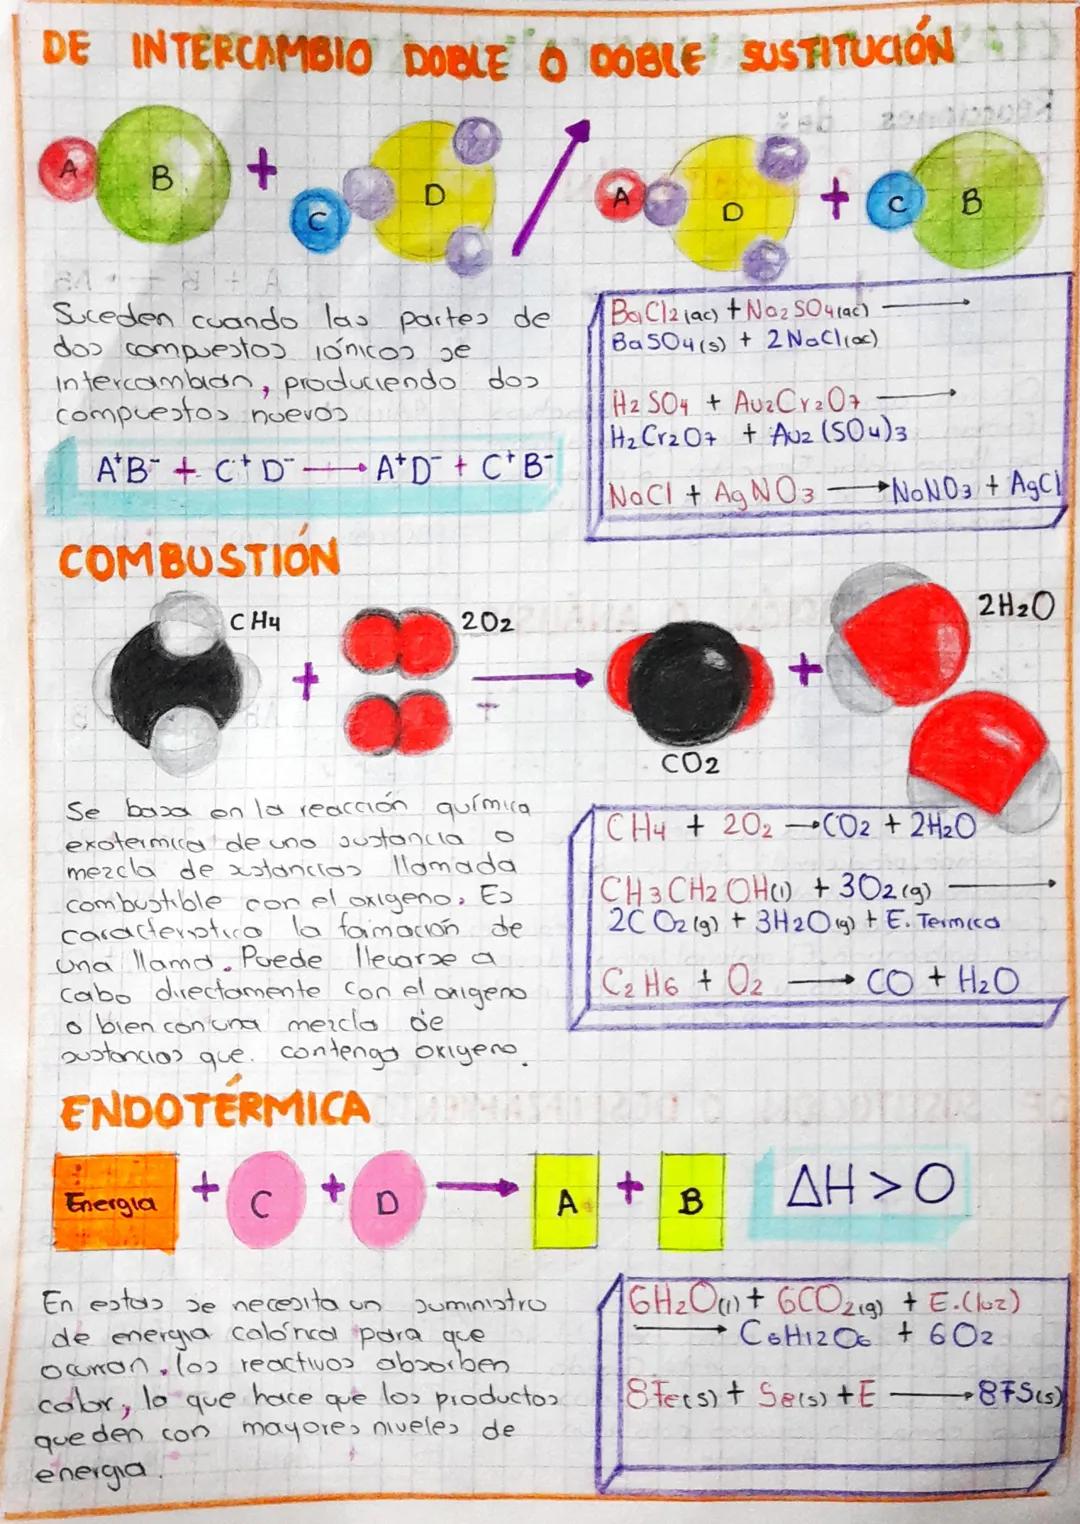 DE INTERCAMBIO DOBLE O DOBLE SUSTITUCIÓN
A B + C D A D + C B
Suceden cuando las partes de
dos compuestos iónicos se
intercambian, produciendo dos
compuestos nuevos
A⁺B⁻ + C⁺D⁻ → A⁺D⁻ + C⁺B⁻
BaCl2(ac) + Na2SO4(ac) →
BaSO4(s) + 2NaCl(ac)
H2SO4 + Au2Cr2O7 →
H2Cr2O7 + Au2(SO4)3
NaCl + AgNO3 → NaNO3 + AgCl
COMBUSTIÓN
CH4 + 2O2 → CO2 + 2H2O
Se basa en la reacción química
exotermica de una sustancia o
mezcla de sstancias llamada
combustible con el oxigeno. Es
caracteristico la formación de
una llama. Puede llevarse a
cabo directamente con el oxigeno
o bien con una mezcla de
sustancias que contenga oxigeno.
CH4 + 2O2 → CO2 + 2H2O
CH3CH2OH(l) + 3O2(g) →
2CO2(g) + 3H2O(g) + E. Termica
C2H6 + O2 → CO + H2O
ENDOTÉRMICA
Energia + C + D → A + B
ΔH > O
En estas se necesita un suministro
de energia calórica para que
ocurran. los reactivos absorben
calor, lo que hace que los productos
queden con mayores niveles de
energia.
6H2O(l) + 6CO2(g) + E.(luz)
→ C6H12O6 + 6O2
8Fe(s) + S8(s) + E → 8FS(s)